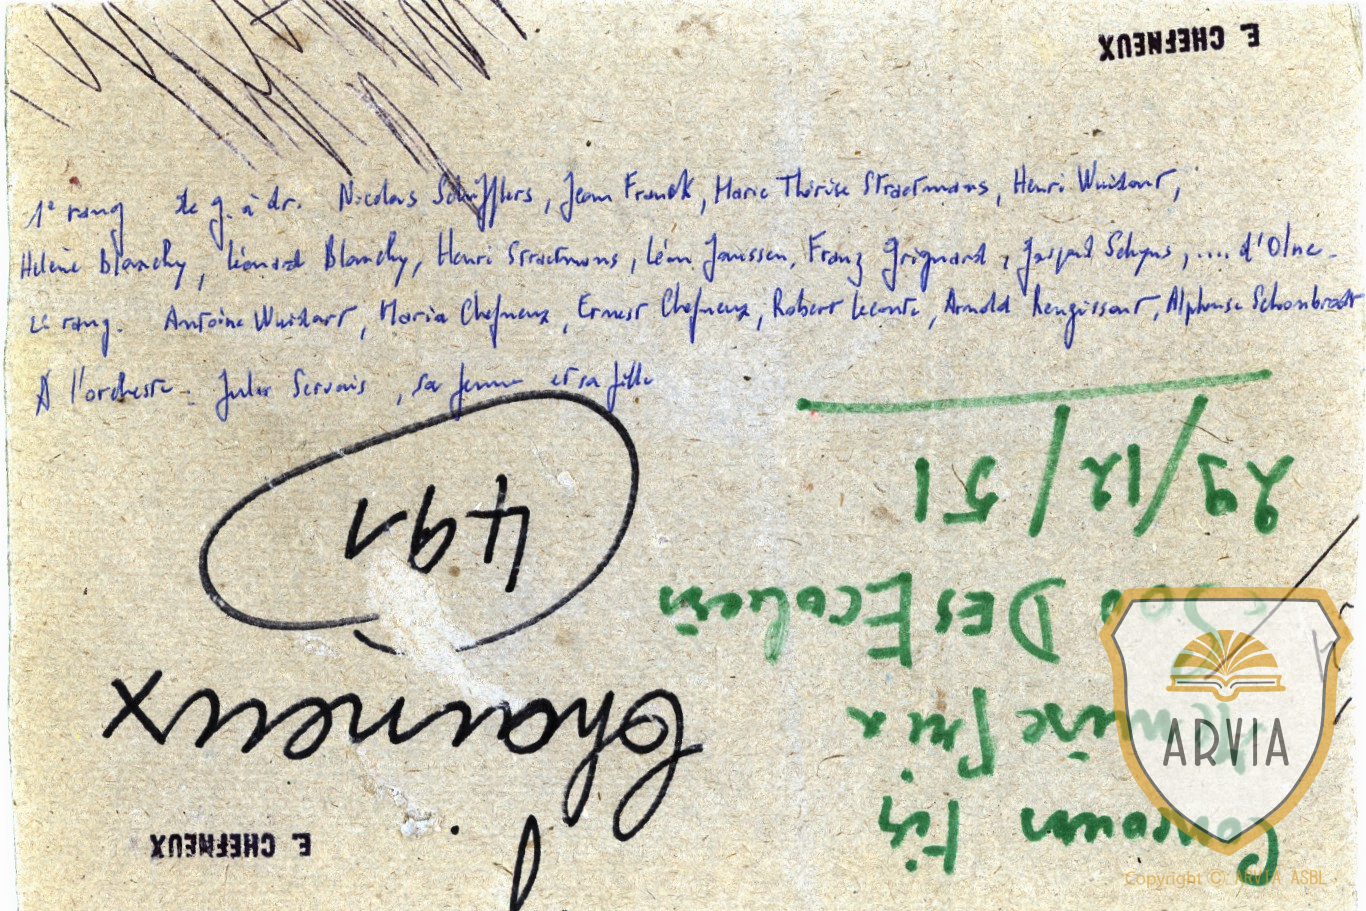 E. CHEFNEUX
1e rang de g. à dr. Nicolas Schifflers, Jean Franck, Marie Thérèse Straetmans, Henri Wuidart,
Hélène Blanchy, Léonard Blanchy, Henri Straetmans, Léon Janssen, Franz Grignard, Jaspard Schyns, .... d'Olne.
2e rang. Antoine Wuidart, Maria Chefneux, Ernest Chefneux, Robert Leconte, Arnold Rengissart, Alphonse Schonbrodt
A l'orchestre : Jules Servais, sa femme et sa fille
491
Concours Fifi
Remise Prix
DES Ecoliers
29/12/51
Chaineux
E. CHEFNEUX
ARVIA
Copyright © ARVIA ASBL